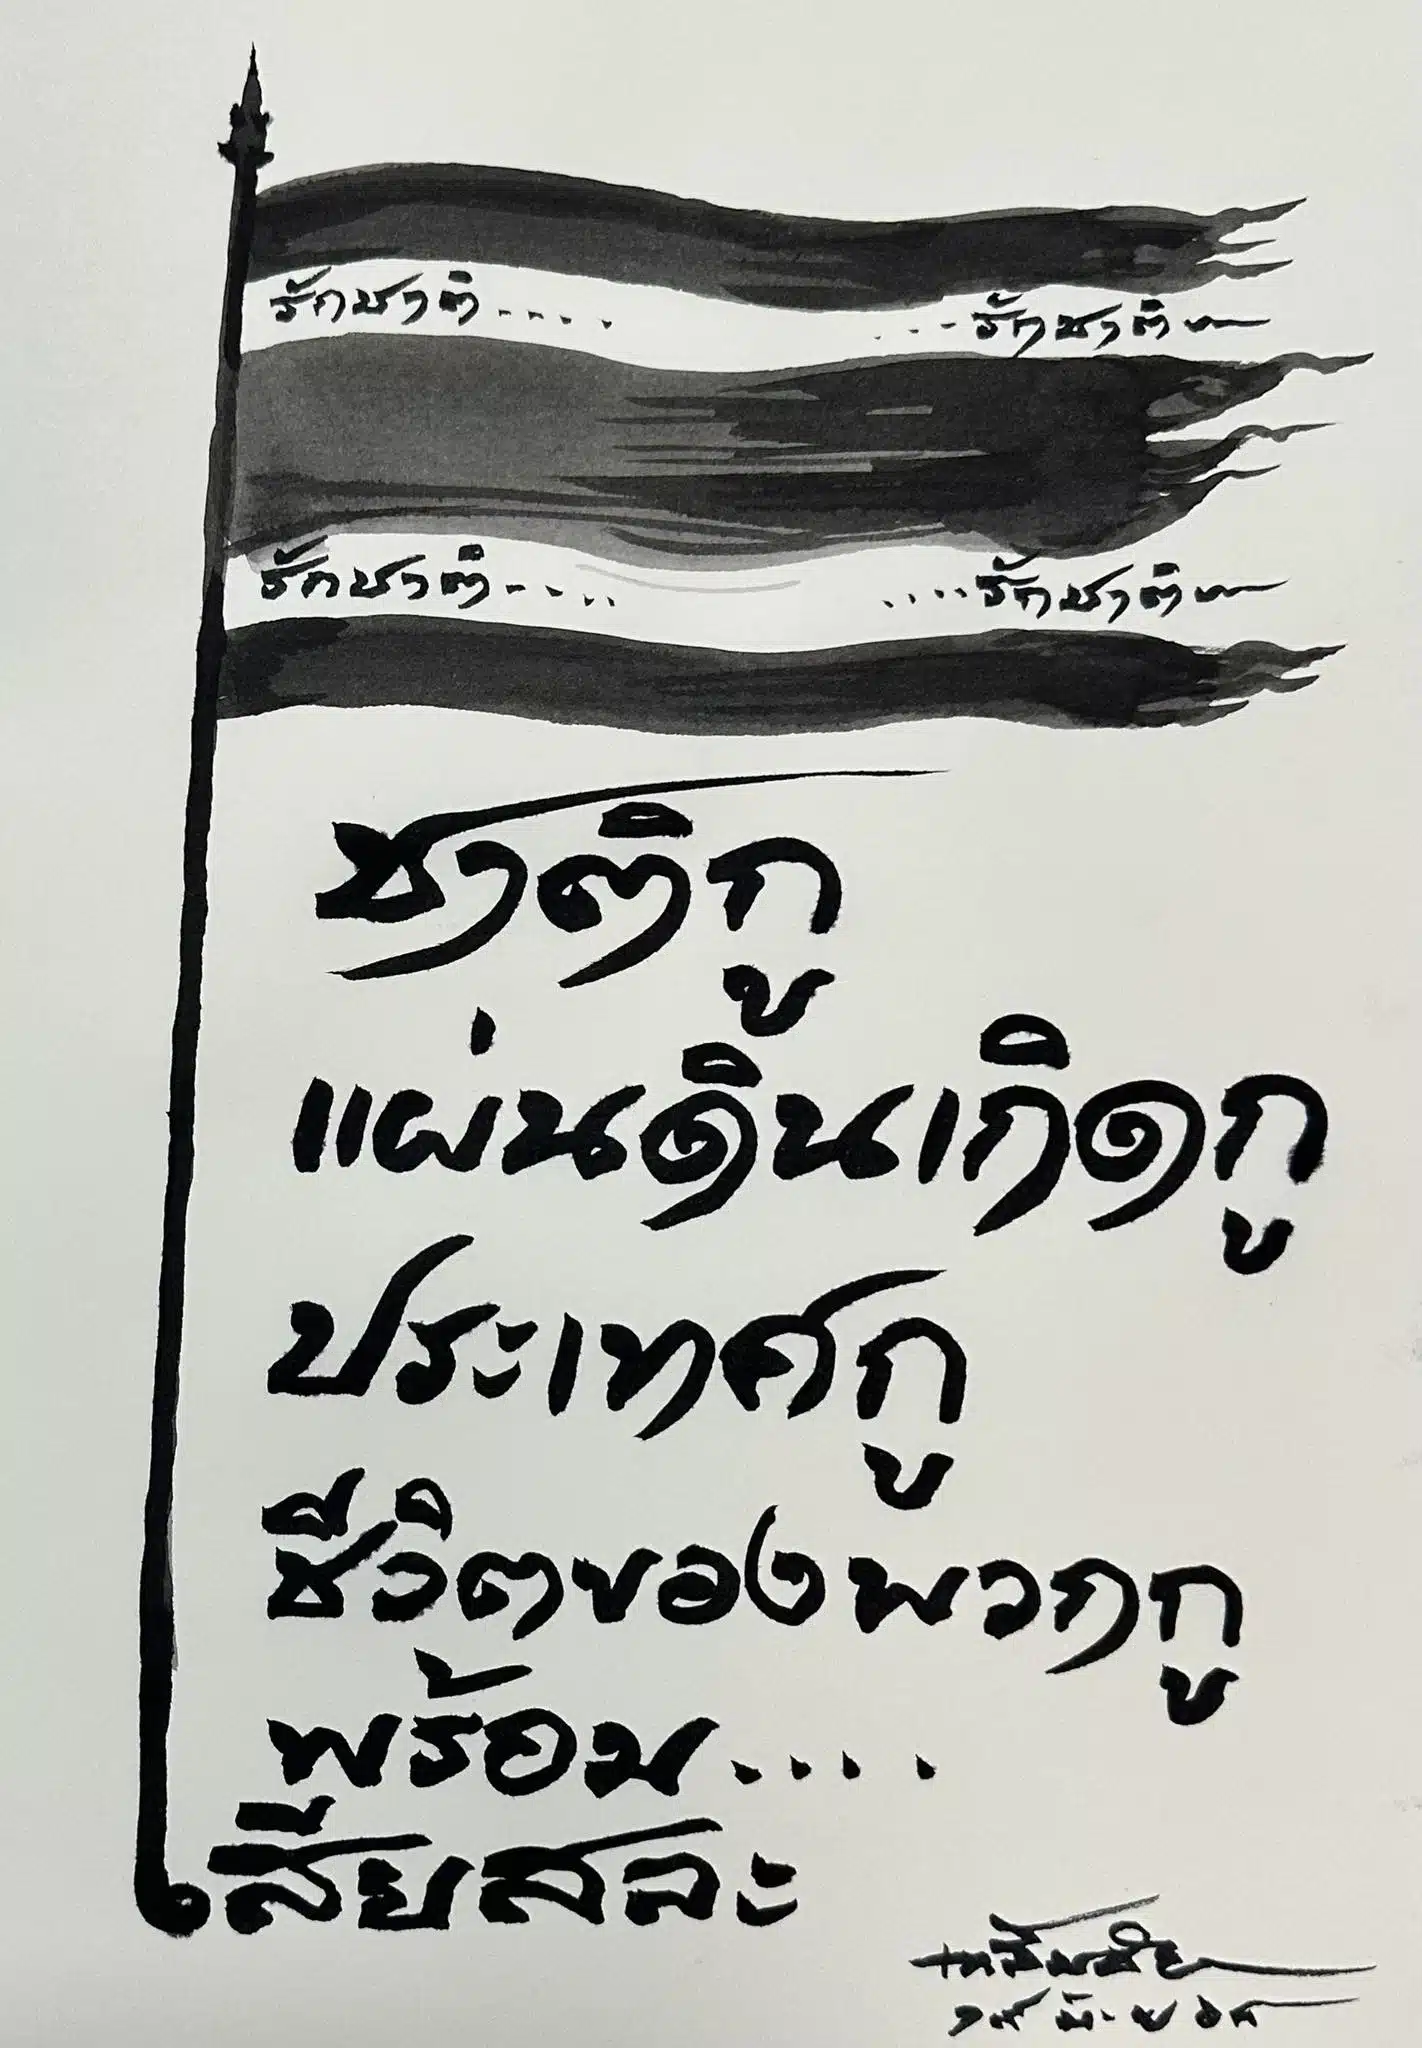 รักชาติ..... ...รักชาติ
รักชาติ..... ....รักชาติ
ชาติกู
แผ่นดินเกิดกู
ประเทศกู
ชีวิตของพวกกู
พร้อม.....
เสียสละ